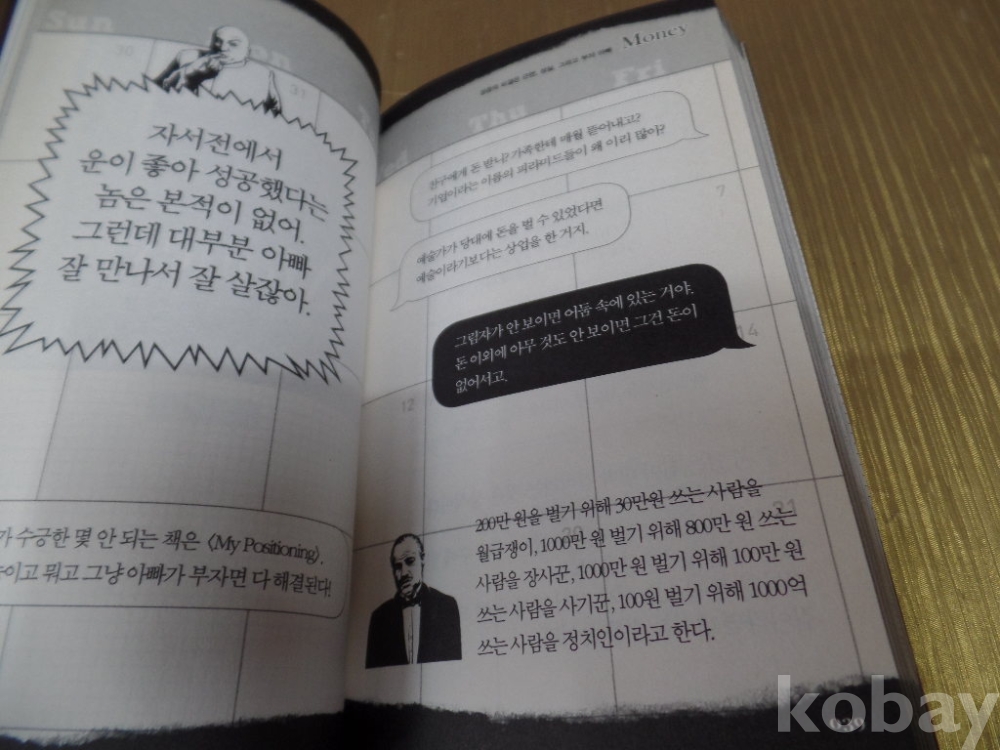 Sun
Mon
30
31
자서전에서
운이 좋아 성공했다는
놈은 본적이 없어.
그런데 대부분 아빠
잘 만나서 잘 살잖아.
수긍한 몇 안 되는 책은 〈My Positioning〉.
뭐고 그냥 아빠가 부자면 다 해결된다!
Money
Thu
Fri
친구에게 돈 받니? 가족한테 매월 뜯어내고?
기업이라는 이름의 피라미드들이 왜 이리 많아?
7
예술가가 당대에 돈을 벌 수 있었다면
예술이라기보다는 상업을 한 거지.
그림자가 안 보이면 어둠 속에 있는 거야.
돈 이외에 아무 것도 안 보이면 그건 돈이
없어서고.
14
12
200만 원을 벌기 위해 30만원 쓰는 사람을
월급쟁이, 1000만 원 벌기 위해 800만 원 쓰는
사람을 장사꾼, 1000만 원 벌기 위해 100만 원
쓰는 사람을 사기꾼, 100원 벌기 위해 1000억
쓰는 사람을 정치인이라고 한다.
20
21
039
kobay